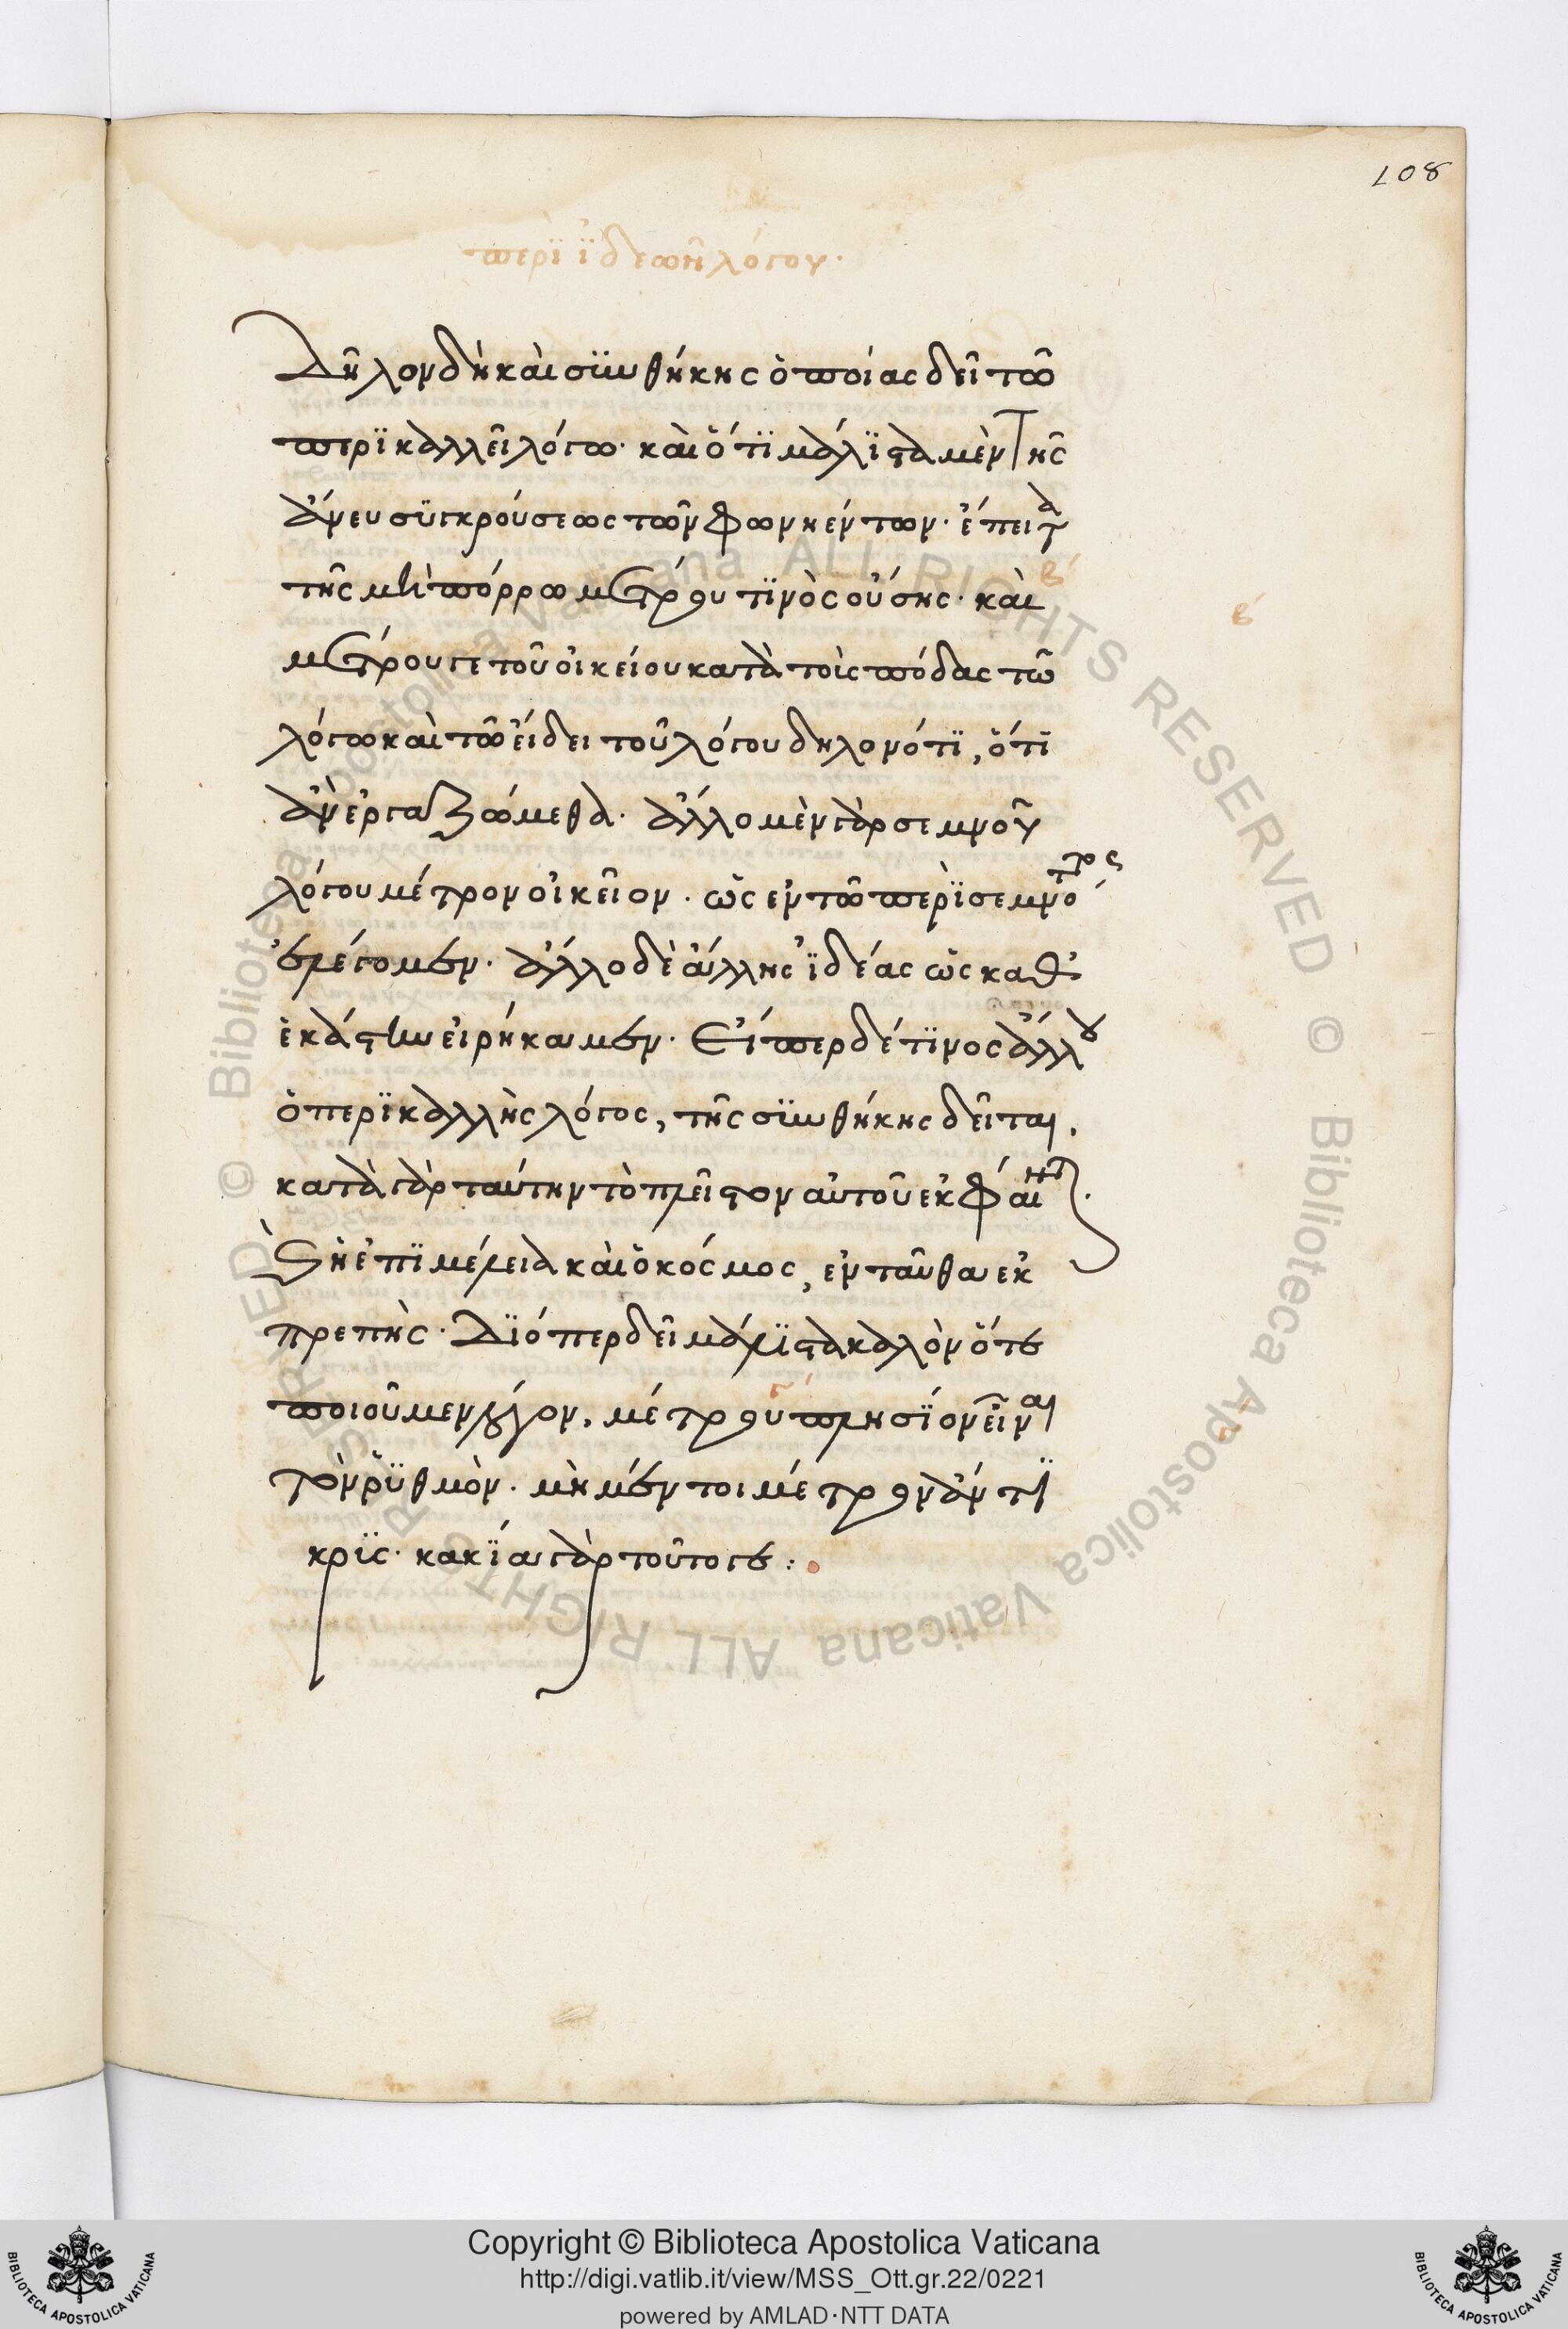 108
περὶ ἰδεῶν λόγου.
Δῆλον δὴ καὶ συνθήκης ὁποίας δεῖ τῶ
περικαλλεῖ λόγω. καὶ ὅτι μάλιστα μὲν τῆς
ἄνευ συγκρούσεως τῶν φωνηέντων. ἔπειτα
τῆς μὴ πόρρω μέτρου τινὸς οὔσης. καὶ β´
β´
μέτρου γε τοῦ οἰκείου κατὰ τοὺς πόδας τῶ
λόγω καὶ τῶ εἴδει τοῦ λόγου δηλονότι, ὅτι
ἂν ἐργαζώμεθα. ἄλλο μὲν γὰρ σεμνοῦ
λόγου μέτρον οἰκεῖον. ὡς ἐν τῶ περὶ σεμνότητος
ἐλέγομεν. ἄλλο δὲ ἄλλης ἰδέας ὡς καθ'
ἑκάστην εἰρήκαμεν. Εἴπερ δέ τινος ἄλλου
ὁ περικαλλὴς λόγος, τῆς συνθήκης δεῖται.
κατὰ γὰρ ταύτην τὸ πλεῖστον αὐτοῦ ἐκφαίνεται.
καὶ ἡ ἐπιμέλεια καὶ ὁ κόσμος, ἐνταῦθα ἐκ
πρεπής. Διόπερ δεῖ μάλιστα καλὸν ὅτε
ποιοῦμεν λόγον, μέτρου πλησίον εἶναι γ´
τὸν ῥυθμὸν. μὴ μέν τοι μέτρον ἄντι
κρις. κακία γὰρ τοῦτο γε:
Copyright © Biblioteca Apostolica Vaticana
http://digi.vatlib.it/view/MSS_Ott.gr.22/0221
powered by AMLAD·NTT DATA
BIBLIOTECA APOSTOLICA VATICANA
BIBLIOTECA APOSTOLICA VATICANA
© Biblioteca Apostolica Vaticana ALL RIGHTS RESERVED © Biblioteca Apostolica Vaticana ALL RIGHTS RESERVED